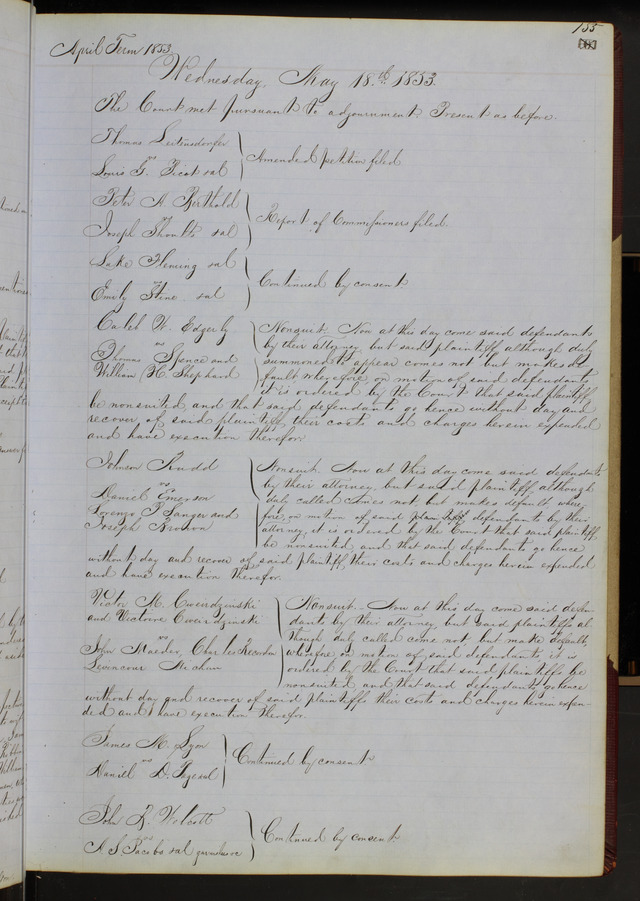 135
April Term 1853
Wednesday, May 18th 1853.
The Court met pursuant to adjournment. Present as before.
Thomas Leitensdorfer
vs
Louis G. Picot et al
Amended petition filed
Peter A. Berthold
Joseph et al
Report of Commissioners filed.
Luke Fleming et al
Emily Stine et al
Continued by consent
Caleb W. Edgerly
vs
Thomas Spence and
William H. Shephard
Nonsuit. Now at this day come said defendants
by their attorney but said plaintiff although duly
summoned to appear comes not but makes de
fault wherefore on motion of said defendants
it is ordered by the Court that said plaintiff
be nonsuited and that said defendants go hence without day and
recover of said plaintiff their costs and charges herein expended
and have execution therefor
Johnson Rudd
vs
Daniel Emerson
Lorenzo P. Sanger and
Joseph Brown
Nonsuit. Now at this day come said defendants
by their attorney, but said plaintiff although
duly called comes not, but makes default where
fore on motion of said defendants by their
attorney it is ordered by the Court that said plaintiff
be nonsuited and that said defendants go hence
without day and recover of said plaintiff their costs and charges herein expended
and have execution therefor.
Victor M. Cweirdzinski
and Victoire Cweirdzinski
vs
John Maeder, Charles
Nonsuit. Now at this day come said defen-
dants by their attorney, but said plaintiffs al
though duly called come not, but make default,
wherefore on motion of said defendants, it is
ordered by the Court that said plaintiffs be
nonsuited and that said defendants go hence
without day and recover of said plaintiffs their costs and charges herein expen-
ded and have execution therefor.
James M. Lyon
vs
Daniel D. et al
Continued by consent
John R. Wolcott
vs
A. S. Jacobs et al garnishee
Continued by consent